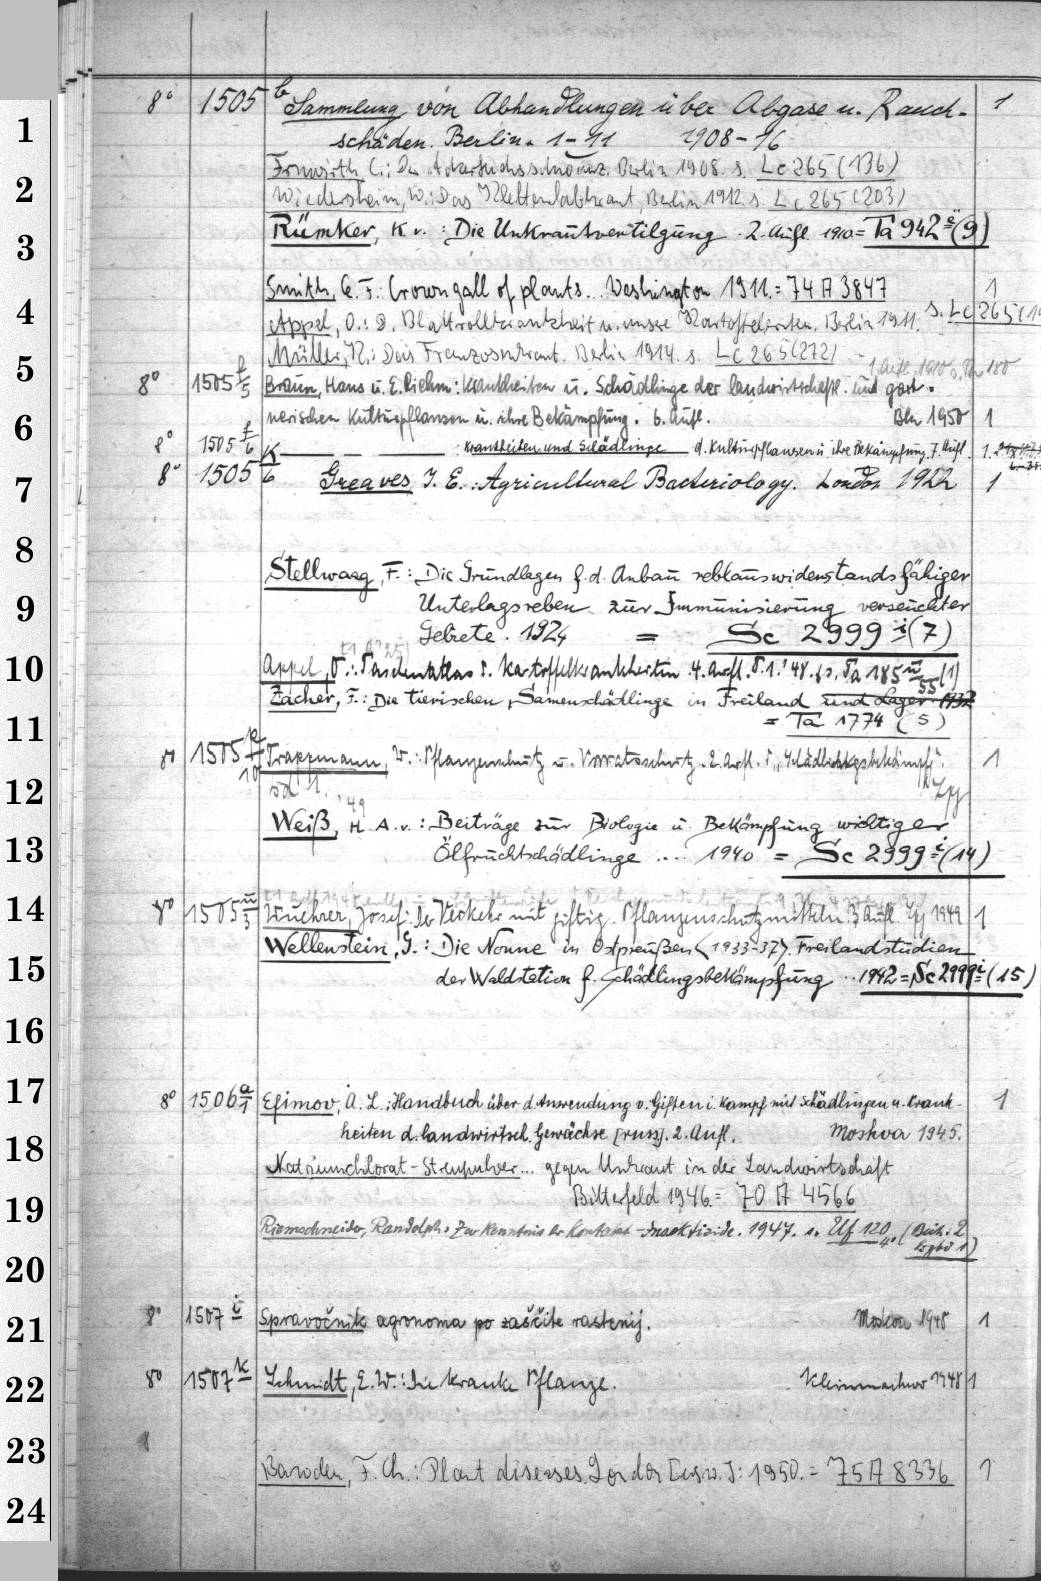 8° 1505 b Sammlung von Abhandlungen über Abgase u. Rauch- 1
schäden. Berlin. 1-11 1908-16
Fruwirth, C.: Der Ackerfuchsschwanz. Berlin 1908. s. Lc 265 (136)
Wiedersheim, W.: Das Klettenlabkraut, Berlin 1912. s. Lc 265 (203)
Rümker, K v.: Die Unkrautvertilgung. 2. Aufl. 1910 = Ta 942 i (9)
Smith, E. F.: Crown gall of plants... Washington 1911. = 74 A 3847 1
Appel, O.: D. Blattrollkrankheit u. unsere Kartoffelernten. Berlin 1911. s. Lc 265 (1
Müller, K.: Das Franzosenkraut. Berlin 1914. s. Lc 265 (272)
1. Aufl. 1910 s. 180
8° 1505 f/5 Braun, Hans u. E. Riehm: Krankheiten u. Schädlinge der landwirtschaftl. und gärt-
nerischen Kulturpflanzen u. ihre Bekämpfung. 6. Aufl. Bln 1950 1
8° 1505 f/6 — — — : Krankheiten und Schädlinge d. Kulturpflanzen u. ihre Bekämpfung. 7. Aufl. 1.
8° 1505 K/6 Greaves, J. E.: Agricultural Bacteriology. London 1922 1
Stellwaag, F.: Die Grundlagen f. d. Anbau reblauswiderstandsfähiger
Unterlagsreben zur Immunisierung verseuchter
Gebiete. 1924 = Sc 2999 i (7)
Appel, O.: Taschenatlas d. Kartoffelkrankheiten. 4. Aufl. T. 1. '48. s. Ta 185 u/55 (1)
Zacher, F.: Die tierischen Samenschädlinge in Freiland und Lager 1932
= Ta 1774 (5)
8° 1505 p/10 Trappmann, W.: Pflanzenschutz u. Vorratsschutz. 2. Aufl. v. „Schädlingsbekämpf." 1
'49 Lpg
Weiß, H. A. v.: Beiträge zur Biologie u. Bekämpfung wichtiger
Ölfruchtschädlinge .... 1940 = Sc 2999 i (14)
8° 1505 u/3 Wuchrer, Josef: Der Verkehr mit giftig. Pflanzenschutzmitteln. 3. Aufl. Lpg 1949 1
Wellenstein, G.: Die Nonne in Ostpreußen (1933-37). Freilandstudien
der Waldstation f. Schädlingsbekämpfung .. 1942 = Sc 2999 i (15)
8° 1506 a/1 Efimov, A. L.: Handbuch über d. Anwendung v. Giften i. Kampf mit Schädlingen u. Krank- 1
heiten d. landwirtsch. Gewächse [russ]. 2. Aufl. Moskva 1945.
Natriumchlorat-Streupulver... gegen Unkraut in der Landwirtschaft
Bitterfeld 1946. = 70 A 4566
Riemschneider, Randolph: Zur Kenntnis der Kontakt-Insektizide. 1947. s. Uf 120 4° (Beih. 2
1)
8° 1507 i Spravočnik agronoma po zaščite rastenij. Moskva 1948 1
8° 1507 k Schmidt, E. W.: Die kranke Pflanze. Kleinmachnow 1948 1
8
F. Ch.: Plant diseases. London [usw.]: 1950. = 75 A 8336 1
1
2
3
4
5
6
7
8
9
10
11
12
13
14
15
16
17
18
19
20
21
22
23
24